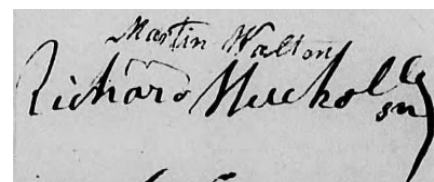 Martin Walton
Richard Nucholls
sn